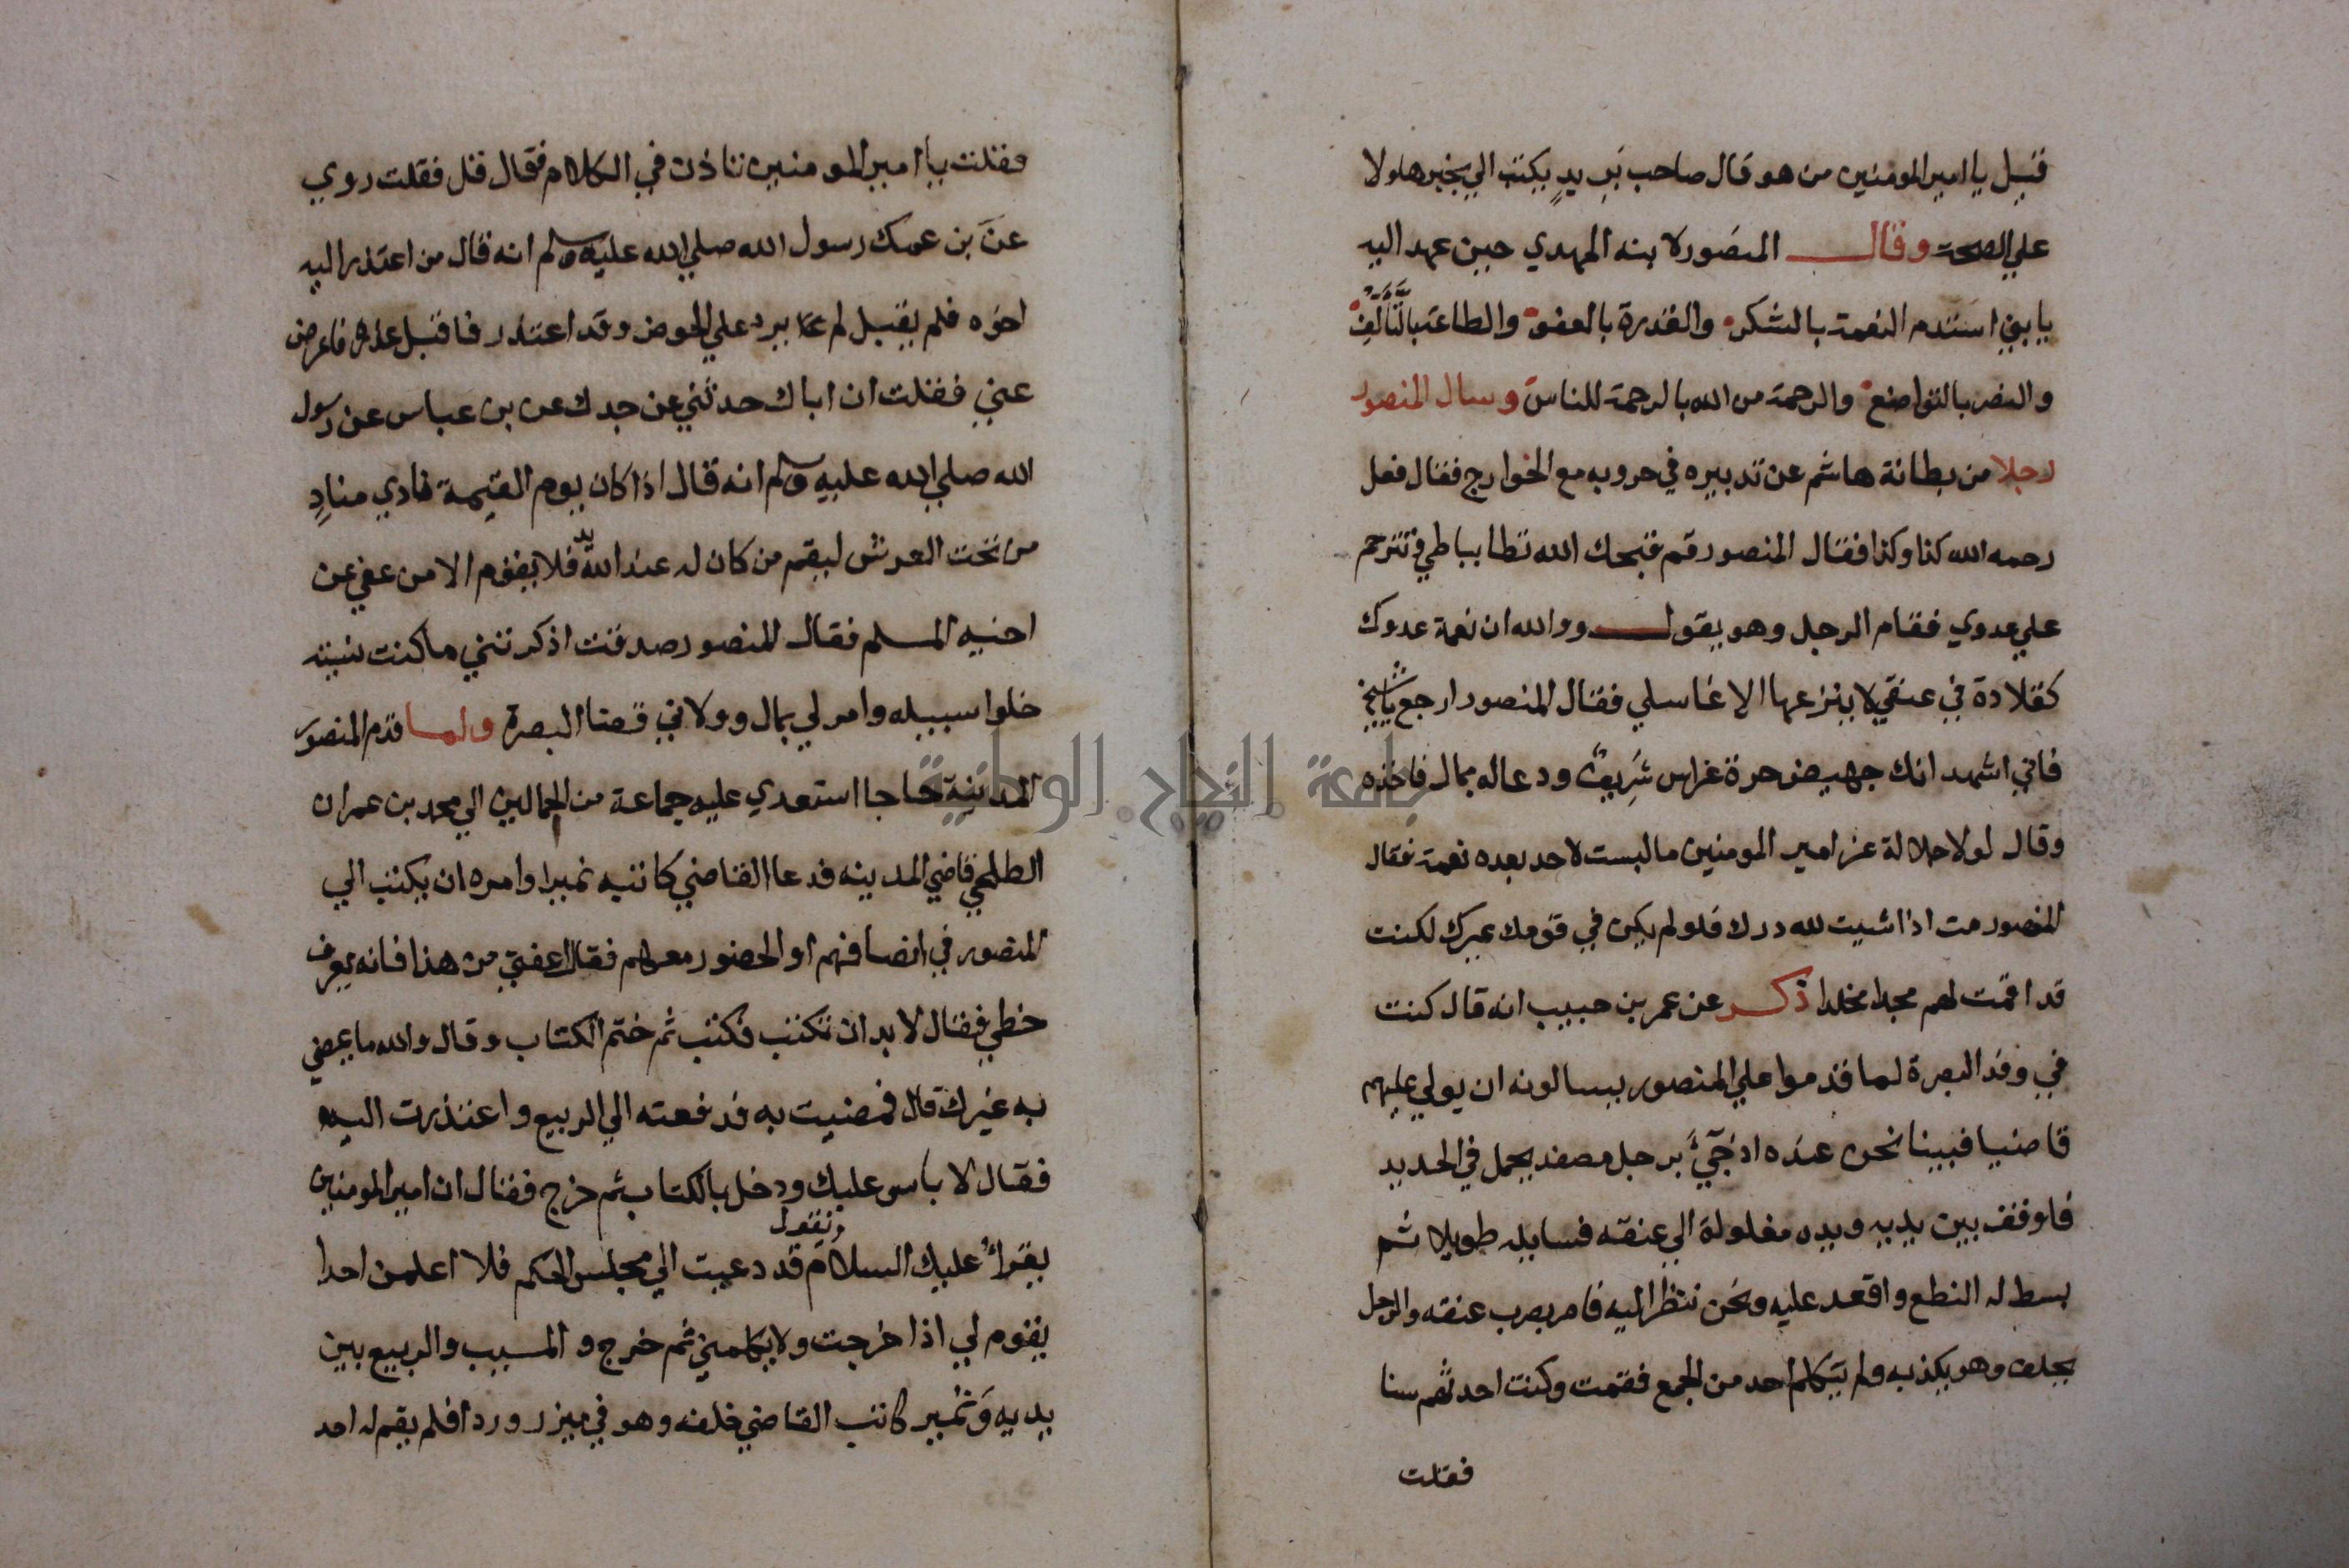 قيل يا امير المومنين من هو قال صاحب بريد يكتب الي بخبر هاولا
علي الصحة وقال المنصور لابنه المهدي حين عهد اليه
يا بني استدم النعمة بالشكر والقدرة بالعفو والطاعة بالتألف
والنصر بالتواضع والرحمة من الله بالرحمة للناس وسال المنصور
رجلا من بطانة هاشم عن تدبيره في حروبه مع الخوارج فقال فعل
رحمه الله كذا وكذا فقال المنصور قم قبحك الله تطا بساطي وتترحم
علي عدوي فقام الرجل وهو يقول ووالله ان نعمة عدوك
كقلادة في عنقي لا ينزعها الا غاسلي فقال المنصور ارجع يا شيخ
فاني اشهد انك جهيض حرة غراس شريف ودعا له بمال فاخذه
وقال لولا جلالة عز امير المومنين ما لبست لاحد بعده نعمة فقال
المنصور مت اذا شيت لله درك فلو لم يكن في قومك غيرك لكنت
قد اقمت لهم مجدا مخلدا ذكر عن عمر بن حبيب انه قال كنت
في وفد البصرة لما قدموا علي المنصور يسالونه ان يولي عليهم
قاضيا فبينا نحن عنده اذ جيء برجل مصفد يحمل في الحديد
فاوقف بين يديه ويده مغلولة الي عنقه فسايله طويلا ثم
بسط له النطع واقعد عليه ونحن ننظر اليه فامر بضرب عنقه والرجل
يحلف وهو يكذبه ولم يتكلم احد من الجمع فقمت وكنت احدثهم سنا
فقلت
فقلت يا امير المومنين تاذن في الكلام فقال قل فقلت روي
عن بن عمك رسول الله صلي الله عليه وسلم انه قال من اعتذر اليه
اخوه فلم يقبل لم يرد علي الحوض وقد اعتذر فاقبل عذره فاعرض
عني فقلت ان اباك حدثني عن جدك عن بن عباس عن رسول
الله صلي الله عليه وسلم انه قال اذا كان يوم القيمة نادي مناد
من تحت العرش ليقم من كان له عند الله يد فلا يقوم الا من عفي عن
اخيه المسلم فقال المنصور صدقت اذكرتني ما كنت نسيته
خلوا سبيله وامر لي بمال وولاني قضا البصرة ولما قدم المنصور
المدينة حاجا استعدي عليه جماعة من الجمالين الي محمد بن عمران
الطلحي قاضي المدينه فدعا القاضي كاتبه نميرا وامره ان يكتب الي
المنصور في انصافهم او الحضور معهم فقال اعفني من هذا فانه يعرف
خطي فقال لا بد ان تكتب فكتب ثم ختم الكتاب وقال والله ما يمضي
به غيرك قال فمضيت به فدفعته الي الربيع واعتذرت اليه
فقال لا باس عليك ودخل بالكتاب ثم خرج فقال ان امير المومنين
يقرأ عليك السلام ويقول قد دعيت الي مجلس الحكم فلا اعلمن احدا
يقوم لي اذا خرجت ولا يكلمني ثم خرج و المسيب والربيع بين
يديه ونمير كاتب القاضي خلفه وهو في ميزر وردا فلم يقم له احد
جامعة النجاح الوطنية